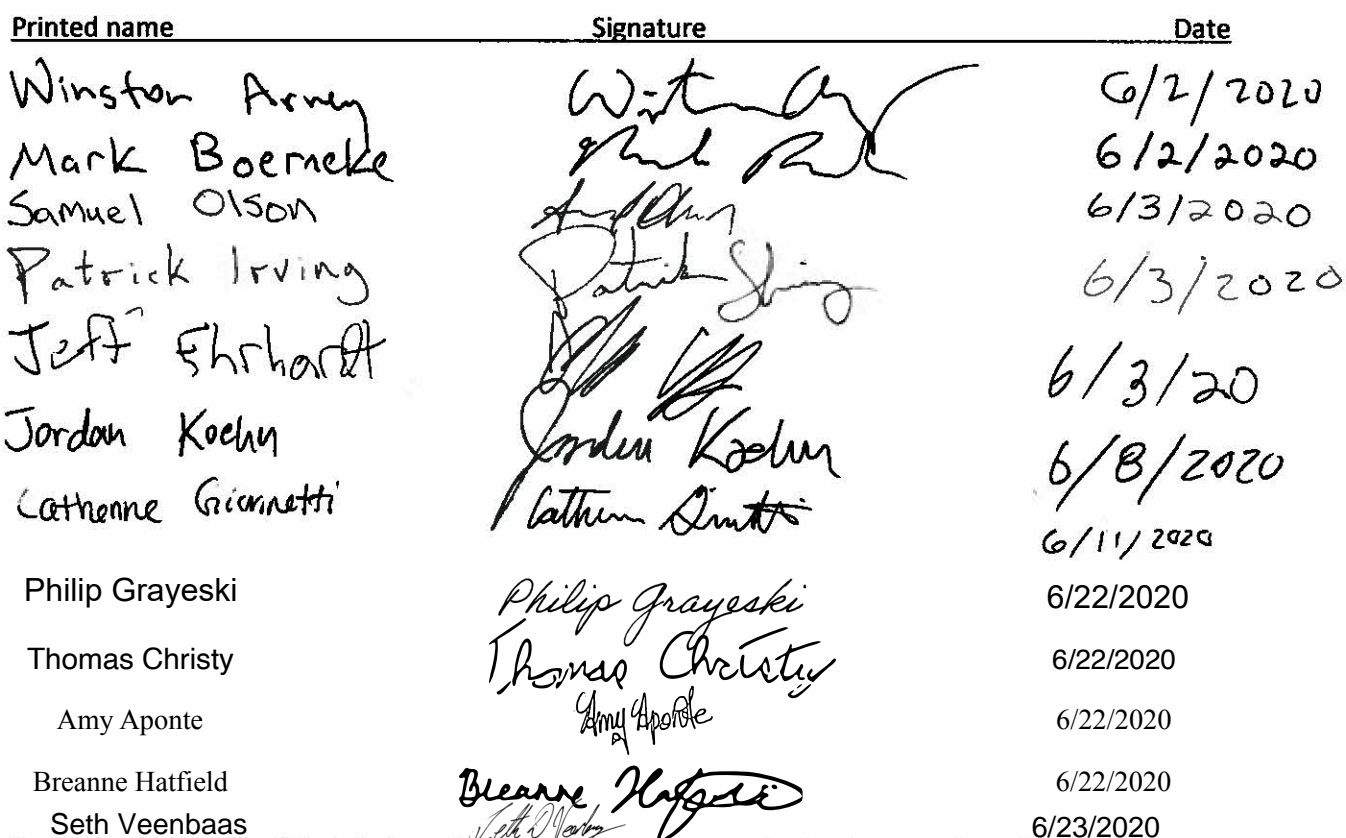 Printed name Signature Date
Winston Arney 6/2/2020
Mark Boerneke 6/2/2020
Samuel Olson 6/3/2020
Patrick Irving Patrick Irving 6/3/2020
Jeff Ehrhardt 6/3/20
Jordan Koehn Jordan Koehn 6/8/2020
Catherine Giannetti 6/11/2020
Philip Grayeski Philip Grayeski 6/22/2020
Thomas Christy Thomas Christy 6/22/2020
Amy Aponte Amy Aponte 6/22/2020
Breanne Hatfield Breanne Hatfield 6/22/2020
Seth Veenbaas 6/23/2020